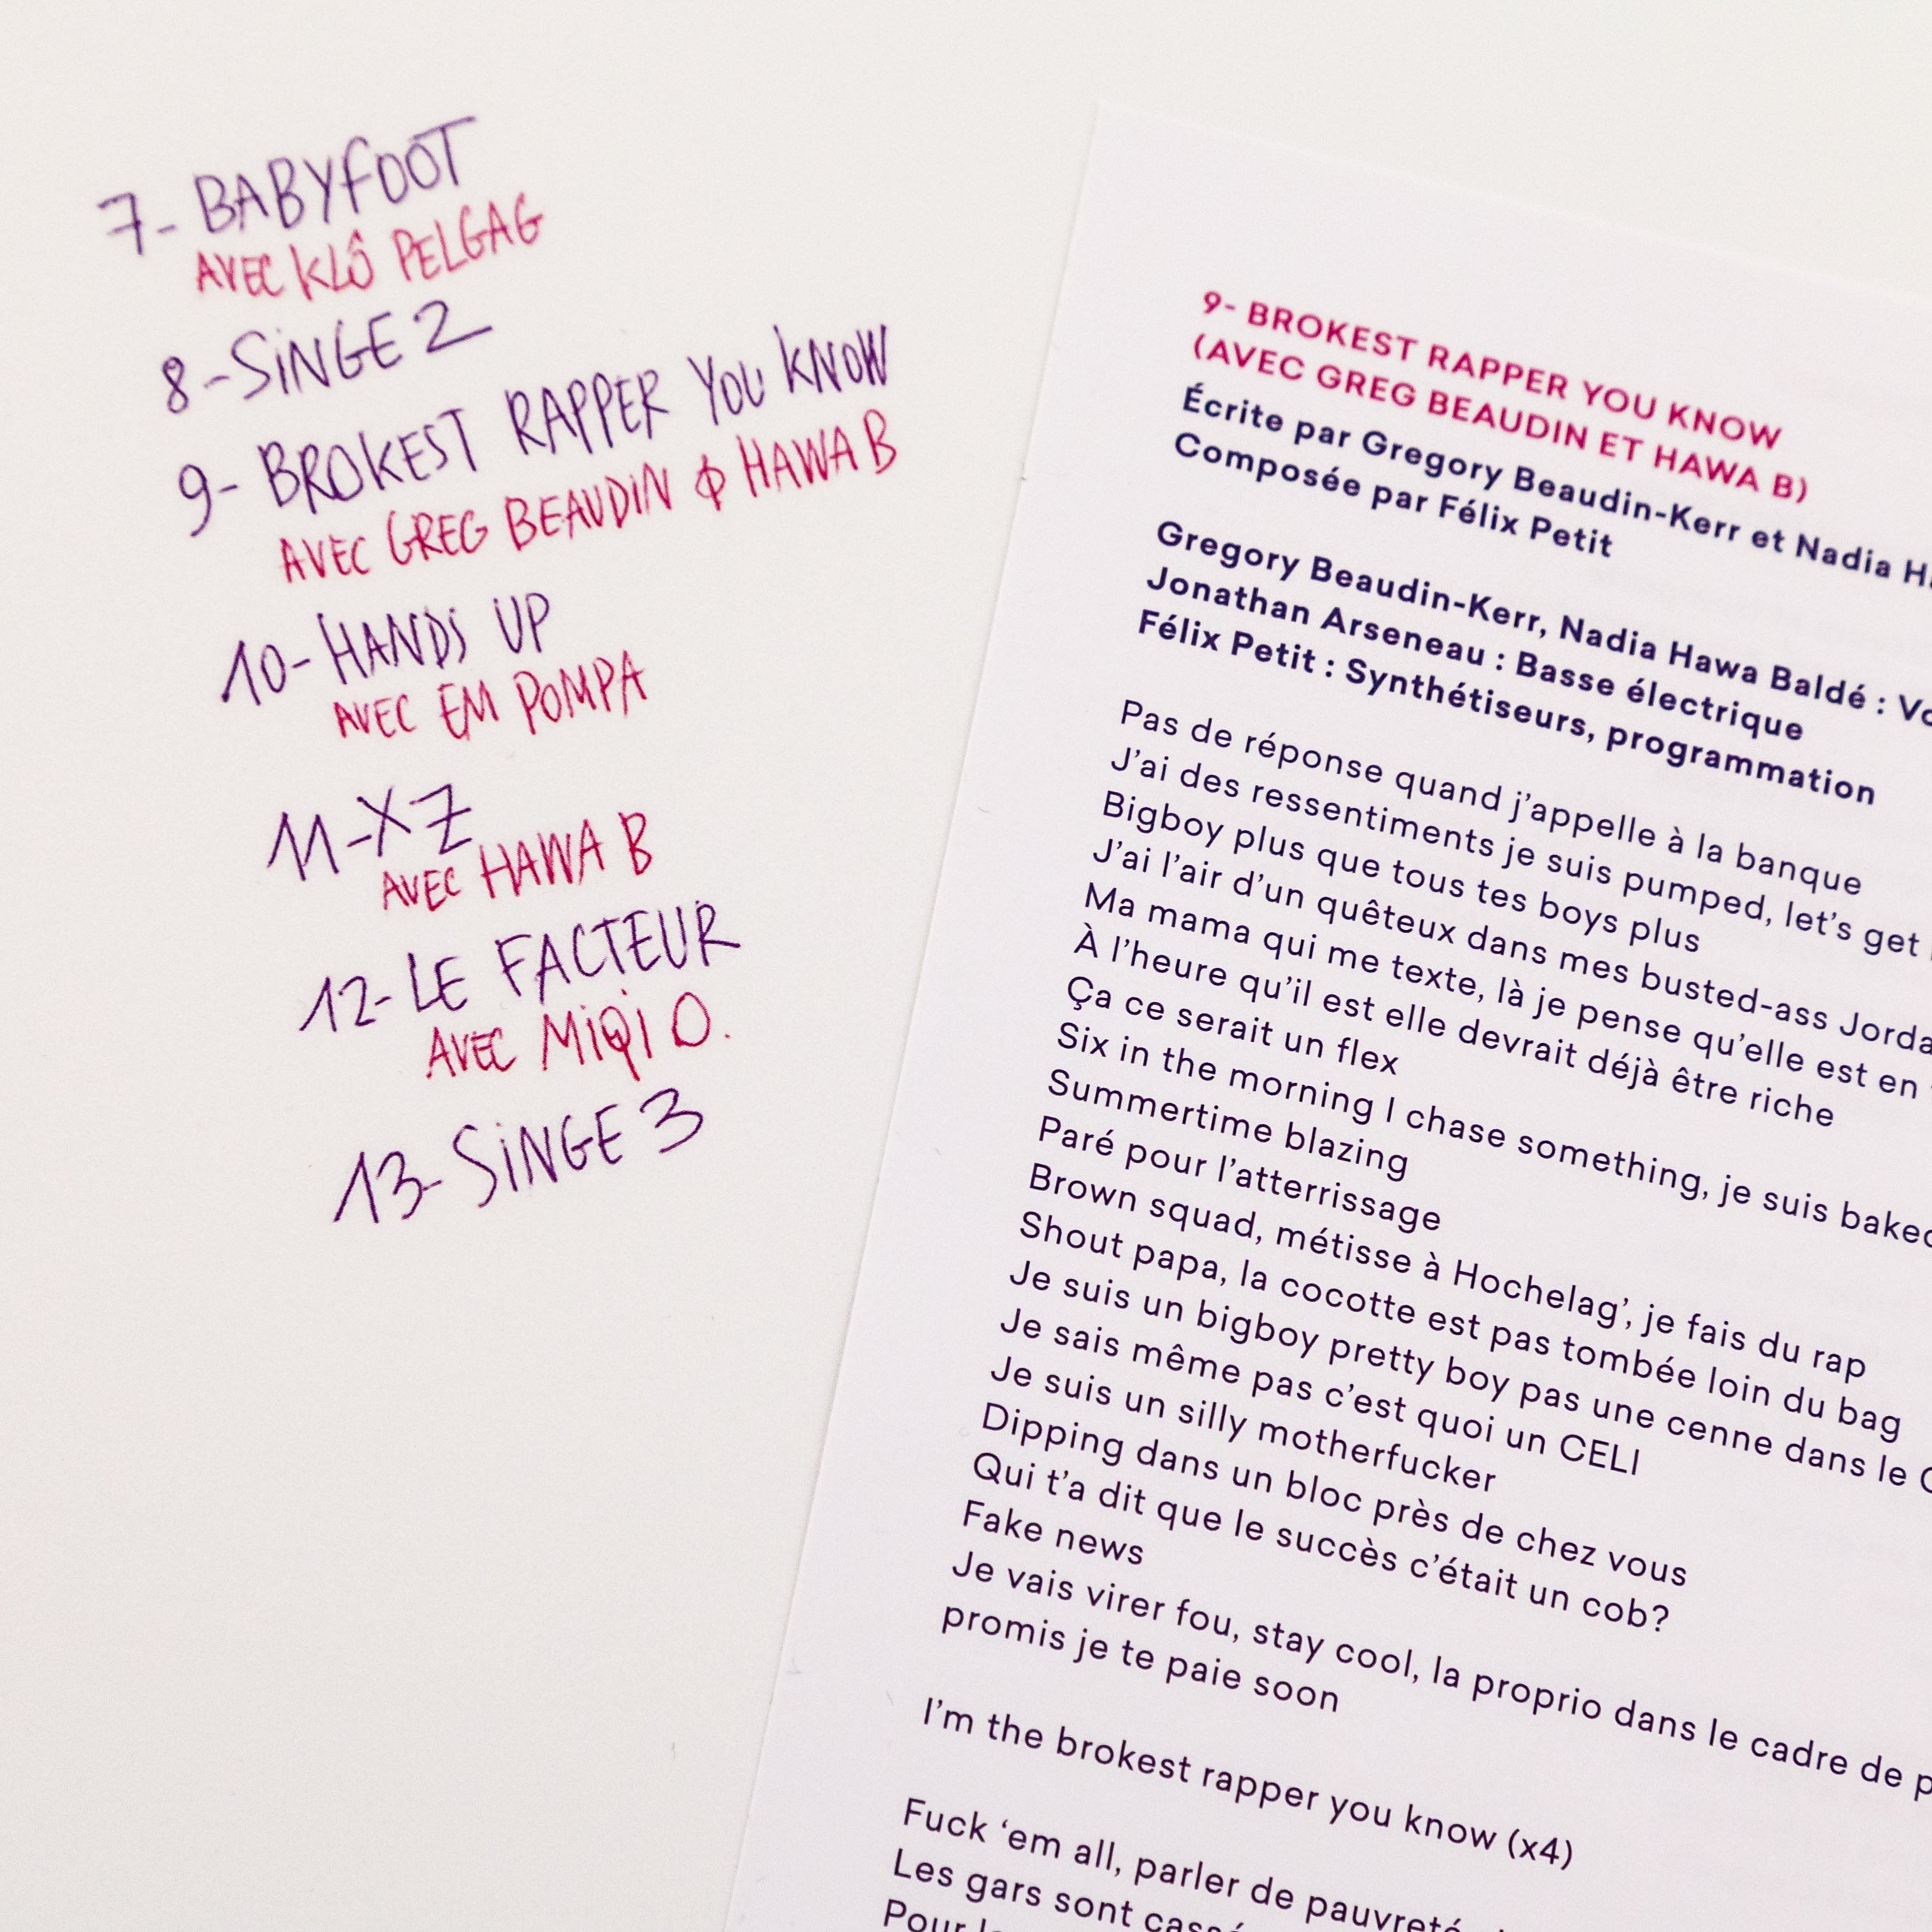 7- BABYFOOT
AVEC KLÔ PELGAG
8- SINGE 2
9- BROKEST RAPPER YOU KNOW
AVEC GREG BEAUDIN & HAWA B
10- HANDS UP
AVEC EM POMPA
11- XZ
AVEC HAWA B
12- LE FACTEUR
AVEC MIQI O.
13- SINGE 3
9- BROKEST RAPPER YOU KNOW
(AVEC GREG BEAUDIN ET HAWA B)
Écrite par Gregory Beaudin-Kerr et Nadia
Composée par Félix Petit
Gregory Beaudin-Kerr, Nadia Hawa Baldé :
Jonathan Arseneau : Basse électrique
Félix Petit : Synthétiseurs, programmation
Pas de réponse quand j'appelle à la banque
J'ai des ressentiments je suis pumped, let's get
Bigboy plus que tous tes boys plus
J'ai l'air d'un quêteux dans mes busted-ass
Ma mama qui me texte, là je pense qu'elle est en
À l'heure qu'il est elle devrait déjà être riche
Ça ce serait un flex
Six in the morning I chase something, je suis
Summertime blazing
Paré pour l'atterrissage
Brown squad, métisse à Hochelag', je fais du rap
Shout papa, la cocotte est pas tombée loin du bag
Je suis un bigboy pretty boy pas une cenne dans le
Je sais même pas c'est quoi un CELI
Je suis un silly motherfucker
Dipping dans un bloc près de chez vous
Qui t'a dit que le succès c'était un cob?
Fake news
Je vais virer fou, stay cool, la proprio dans le cadre de
promis je te paie soon
I'm the brokest rapper you know (x4)
Fuck 'em all, parler de pauvreté
Les gars sont
Pour